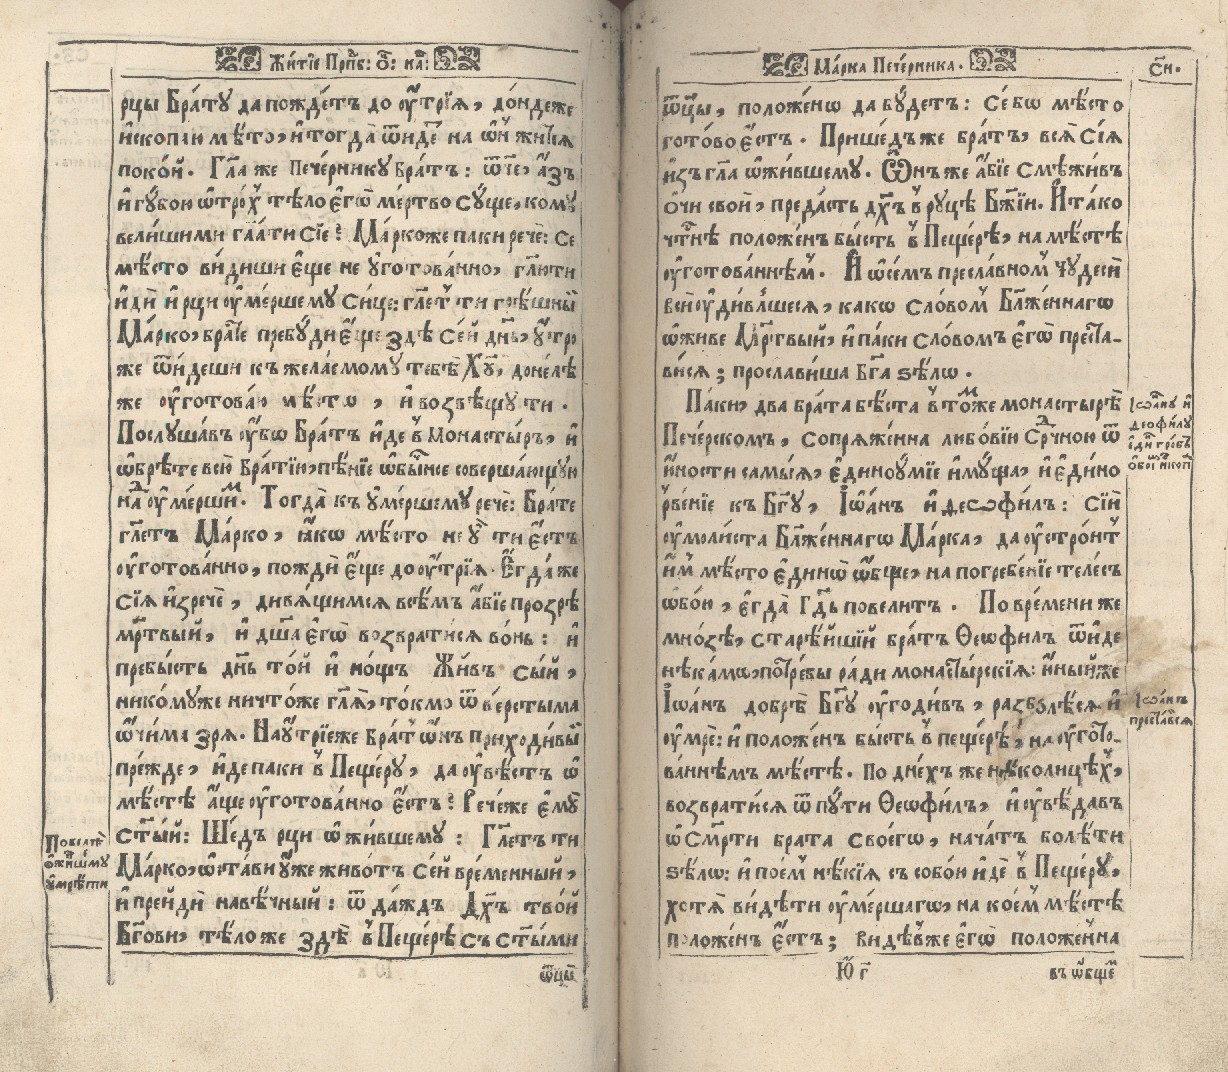 Житїе Прпⷣб: ѻ҃ц: на́ш:
рцы Бра́ту да пожде́тъ до оу҆́трїѧ, до́ндеже
и҆скопаю мѣ́сто, и҆ тогда ѿиде́ на ѡ҆́нїи жи́тїѧ
поко́й. Гл҃а же Пече́рнику Бра́тъ: ѿ́че, а҆́зъ
и҆ гу́бою ѡ҆тро́хъ тѣ́ло є҆гѡ̀ ме́ртво су́ще, кому̀
вели́ши ми гл҃ати сїѐ? Ма́рко же паки речѐ: Се
мѣ́сто ви́диши є҆ще не оу҆гото́ванно, гл҃ю ти
и҆дѝ и҆ рцѝ оу҆ме́ршему си́це: гл҃етъ ти грѣ́шный
Ма́рко, бра́те пребу́ди є҆ще здѣ̀ сей де́нь, оу҆́тро
же ѿи́деши къ жела́емому тебѣ̀ Хрⷭ҇ту̀, до́нелѣ
же оу҆гото́ваю мѣ́сто, и҆ возвѣщу̀ ти.
Послу́шавъ оу҆́бѡ Бра́тъ и҆́де в̾ Монасты́рь, и҆
ѡ҆брѣ́те всю̀ Бра́тїю, пѣ́нїе ѡ҆бы́чное соверша́ющую
наⷣ оу҆ме́ршиⷨ. Тогда̀ къ оу҆ме́ршему речѐ: Бра́те
гл҃етъ Ма́рко, ꙗ҆́кѡ мѣ́сто не оу҆̀ ти є҆́стъ
оу҆гото́ванно, пождѝ є҆ще до оу҆́трїѧ. Є҆гда́ же
сїѧ̀ и҆зречѐ, дивѧ́щимсѧ всѣ́мъ а҆́бїе прозрѣ̀
мр҃твый, и҆ дш҃а є҆гѡ̀ возврати́сѧ во́нь: и҆
пребы́сть де́нь то́й и҆ но́щь Жи́въ сы́й,
никому́же ничто́же гл҃ѧ, то́кмо ѿве́рстыма
ѡ҆чи́ма зрѧ̀. Наоу҆трїе же Бра́тъ ѡ҆́нъ приходи́вый
пре́жде, и҆́де паки в̾ Пеще́ру, да оу҆вѣ́стъ ѡ҆
мѣ́стѣ а҆́ще оу҆гото́ванно є҆́стъ? Рече́ же є҆му̀
ст҃ый: Ше́дъ рцѝ ѡ҆жи́вшему: Гл҃етъ ти
Ма́рко, ѡ҆ста́ви оу҆́же живо́тъ се́й вре́менный,
и҆ прейдѝ на вѣ́чный: ѿда́ждь Дх҃ъ тво́й
Бг҃ови, тѣ́ло же здѣ̀ в̾ Пеще́рѣ съ ст҃ы́ми
Повелѣ̀
ѡ҆жи́вшему
оу҆мре́ти
ѿцы̀
Ма́рка Пече́рника.
с҃н.
ѿцы̀, положе́нѡ да бу́детъ: Се́ бѡ мѣ́сто
гото́во є҆́стъ. Прише́дъ же бра́тъ, всѧ̀ сїѧ̀
и҆з̾гл҃а ѡ҆жи́вшему. Ѻ҆́нъ же а҆́бїе смѣжи́въ
ѻ҆́чи своѝ, преда́сть дх҃ъ в̾ ру́цѣ Бж҃їи. И҆ та́ко
чⷭ҇тнѣ̀ положе́нъ бы́сть в̾ Пеще́рѣ, на мѣ́стѣ
оу҆гото́ваннѣмъ. И҆ ѡ҆ се́мъ пресла́вномъ чудесѝ
всѝ оу҆диви́вшеесѧ, ка́кѡ сло́вомъ Бл҃же́ннагѡ
ѡ҆живе Мр҃твый, и҆ паки сло́вомъ є҆гѡ̀ преста́-
висѧ; просла́виша Бг҃а ѕѣлѡ̀.
Паки, два бра́та бѣ́ста в̾ то́мже монастырѣ̀
Пече́рскомъ, сопрѧже́нна любо́вїю срⷣчною ѿ
ю҆́ности самы́ѧ, є҆диноу́мїе и҆му́ща, и҆ є҆ди́но
рве́нїе къ Бг҃у, І҆ѡа́нъ и҆ Ѳеѻфи́лъ: сїѝ
оу҆моли́ста Бл҃же́ннагѡ Ма́рка, да оу҆стро́итъ
и҆́мъ мѣ́сто є҆ди́нѡ ѡ҆́бще, на погребе́нїе телесъ
ѡ҆бою, є҆гда̀ Гдⷭ҇ь повели́тъ. По вре́мени же
мно́зѣ, старѣ́йшїй бра́тъ Ѳеѡфи́лъ ѿи́де
нѣ́камѡ, потре́бы ра́ди монасты́рскїѧ: и҆́ный же
І҆ѡа́нъ добрѣ̀ Бг҃у оу҆годи́въ, разболѣ́сѧ и҆
оу҆́мре: и҆ положе́нъ бы́сть в̾ пеще́рѣ, на оу҆гото́-
ваннѣмъ мѣ́стѣ. По дне́хъ же нѣ́колицѣхъ,
возврати́сѧ ѿ пу́ти Ѳеѡфи́лъ, и҆ оу҆вѣ́давъ
ѡ҆ сме́рти бра́та своегѡ̀, нача́тъ болѣ́ти
ѕѣлѡ̀: и҆ пое́мъ нѣ́кїѧ съ собо́ю и҆́де в̾ Пеще́ру,
хотѧ̀ ви́дѣти оу҆ме́ршаго, на ко́емъ мѣ́стѣ
положе́нъ є҆́стъ; ви́дѣвже є҆гѡ̀ положе́нна
І҆ѡа́ну и҆
Ѳеофи́лу
є҆ди́нъ гро́бъ
ѻ҆бои́мъ и҆скопа̀
І҆ѡа́нъ
преста́висѧ
Ю҆ г҃
въ ѡ҆́бщемъ